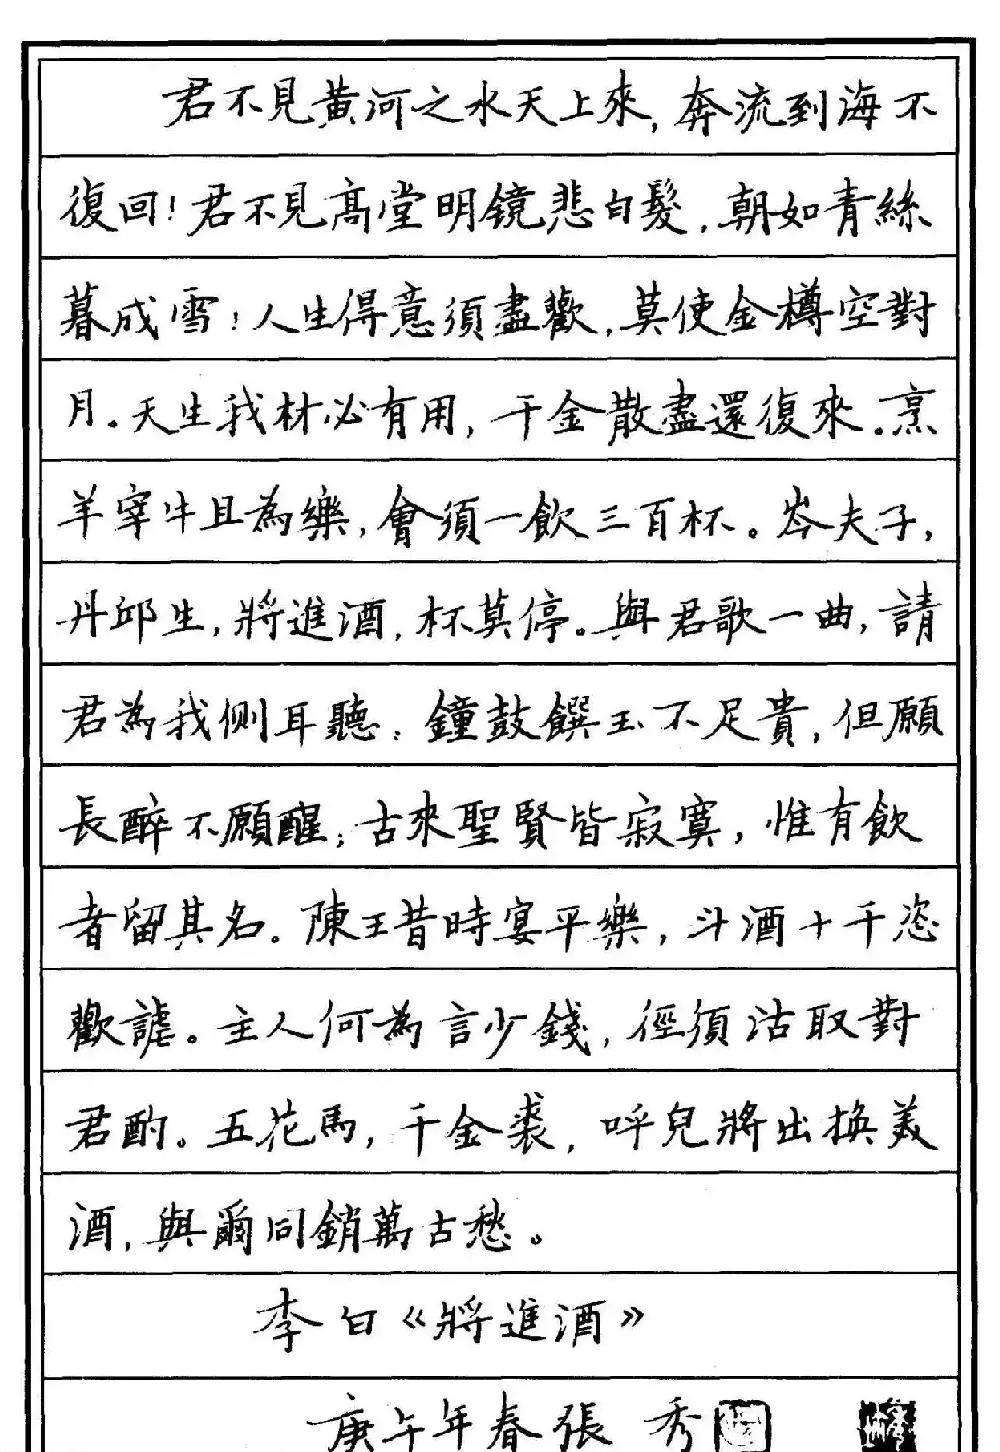 君不見黃河之水天上來，奔流到海不
復回！君不見高堂明鏡悲白髮，朝如青絲
暮成雪！人生得意須盡歡，莫使金樽空對
月。天生我材必有用，千金散盡還復來。烹
羊宰牛且為樂，會須一飲三百杯。岑夫子，
丹邱生，將進酒，杯莫停。與君歌一曲，請
君為我側耳聽：鐘鼓饌玉不足貴，但願
長醉不願醒；古來聖賢皆寂寞，惟有飲
者留其名。陳王昔時宴平樂，斗酒十千恣
歡謔。主人何為言少錢，徑須沽取對
君酌。五花馬，千金裘，呼兒將出換美
酒，與爾同銷萬古愁。
李白《將進酒》
庚午年春張秀